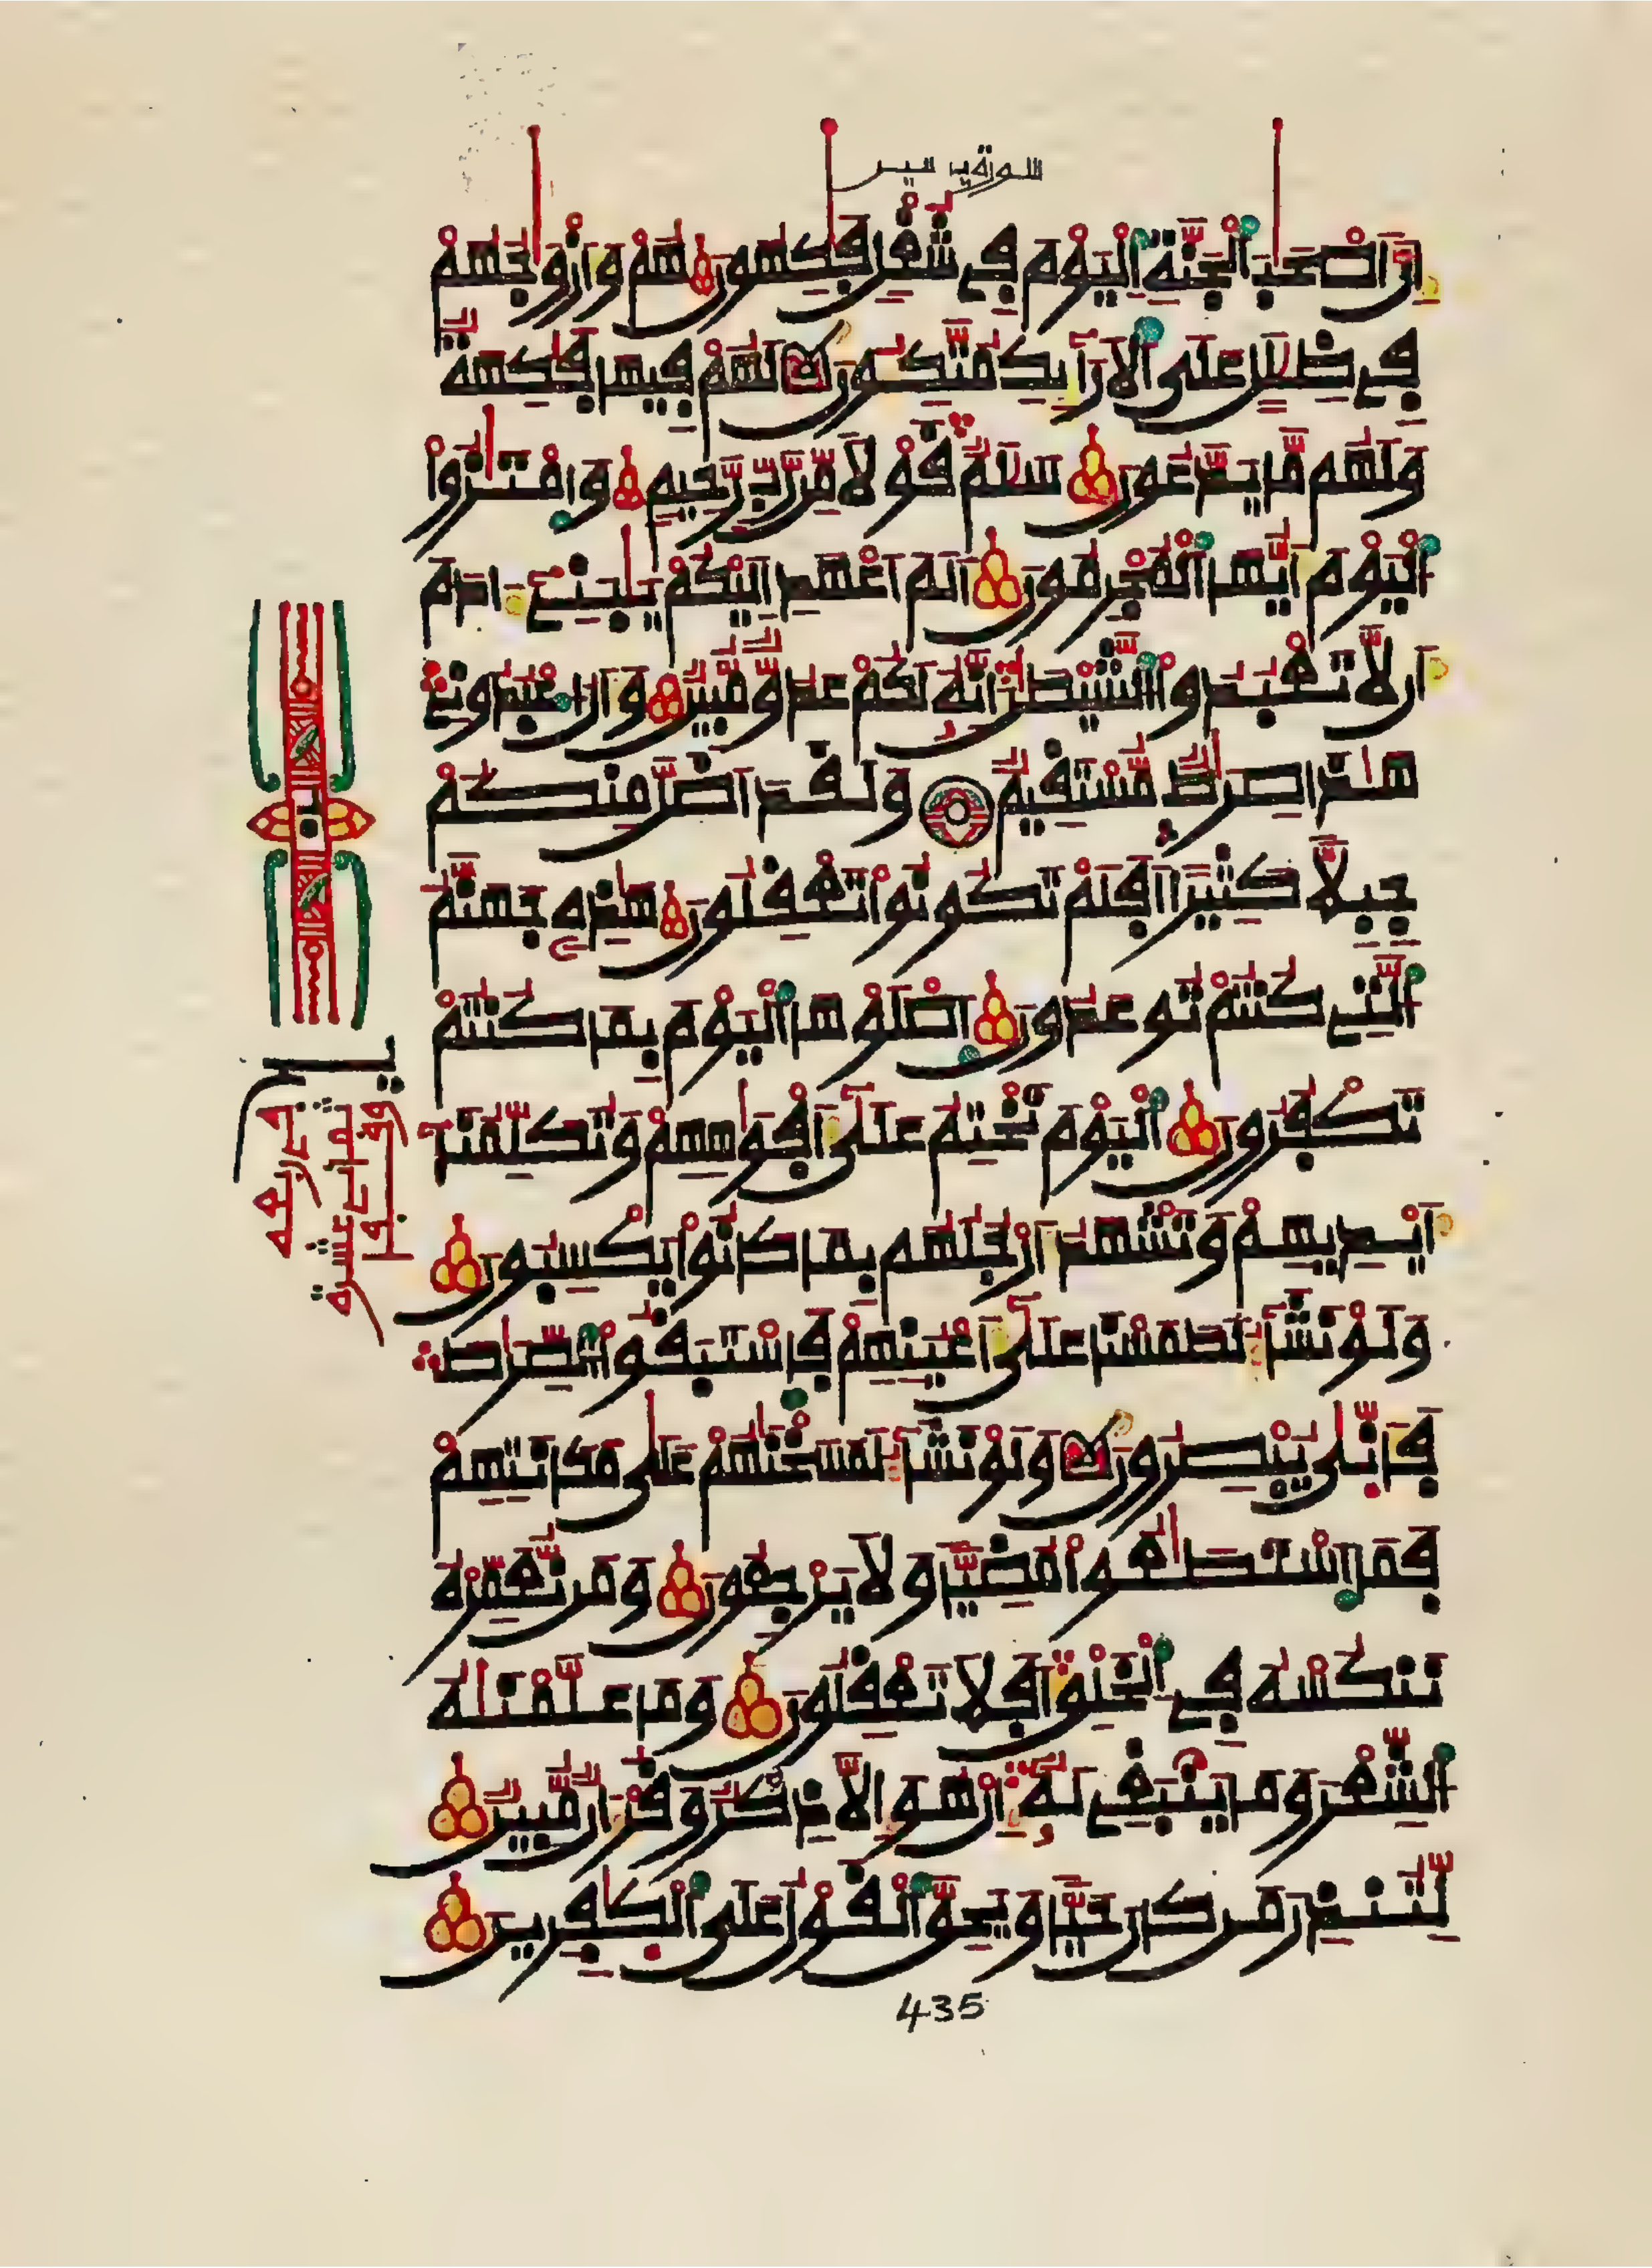 سورة يس
إِنَّ أَصْحَٰبَ ٱلْجَنَّةِ ٱلْيَوْمَ فِي شُغْلٍ فَٰكِهُونَ هُمْ وَأَزْوَٰجُهُمْ
فِي ظِلَٰلٍ عَلَى ٱلْأَرَآئِكِ مُتَّكِـُٔونَ لَهُمْ فِيهَا فَٰكِهَةٌ
وَلَهُم مَّا يَدَّعُونَ سَلَٰمٌ قَوْلًا مِّن رَّبٍّ رَّحِيمٍ وَامْتَٰزُوا
ٱلْيَوْمَ أَيُّهَا ٱلْمُجْرِمُونَ أَلَمْ أَعْهَدِ الَيْكُمْ يَٰبَنِي ءَادَمَ
أَن لَّا تَعْبُدُوا ٱلشَّيْطَٰنَ إِنَّهُ لَكُمْ عَدُوٌّ مُّبِينٌ وَأَنُ اعْبُدُونِي
هَٰذَا صِرَٰطٌ مُّسْتَقِيمٌ وَلَقَدَ اضَلَّ مِنكُمْ
جِبِلًّا كَثِيرًا أَفَلَمْ تَكُونُوا تَعْقِلُونَ هَٰذِهِ جَهَنَّمُ
ٱلَّتِي كُنتُمْ تُوعَدُونَ ٱصْلَوْهَا ٱلْيَوْمَ بِمَا كُنتُمْ
تَكْفُرُونَ ٱلْيَوْمَ نَخْتِمُ عَلَىٰ أَفْوَٰهِهِمْ وَتُكَلِّمُنَا
أَيْدِيهِمْ وَتَشْهَدُ أَرْجُلُهُم بِمَا كَانُوا يَكْسِبُونَ
وَلَوْ نَشَآءُ لَطَمَسْنَا عَلَىٰ أَعْيُنِهِمْ فَاسْتَبَقُوا ٱلصِّرَٰطَ
فَأَنَّىٰ يُبْصِرُونَ وَلَوْ نَشَآءُ لَمَسَخْنَٰهُمْ عَلَىٰ مَكَانَتِهِمْ
فَمَا ٱسْتَطَٰعُوا مُضِيًّا وَلَا يَرْجِعُونَ وَمَن نُّعَمِّرْهُ
نَنكُسْهُ فِي ٱلْخَلْقِ أَفَلَا تَعْقِلُونَ وَمَا عَلَّمْنَٰهُ
ٱلشِّعْرَ وَمَا يَنۢبَغِي لَهُ إِنْ هُوَ إِلَّا ذِكْرٌ وَقُرْءَانٌ مُّبِينٌ
لِّتُنذِرَ مَن كَانَ حَيًّا وَيَحِقَّ ٱلْقَوْلُ عَلَى ٱلْكَٰفِرِينَ
435